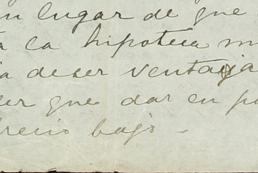 en lugar de que
la hipoteca
deser ventaja
que dar en
precio bajo.